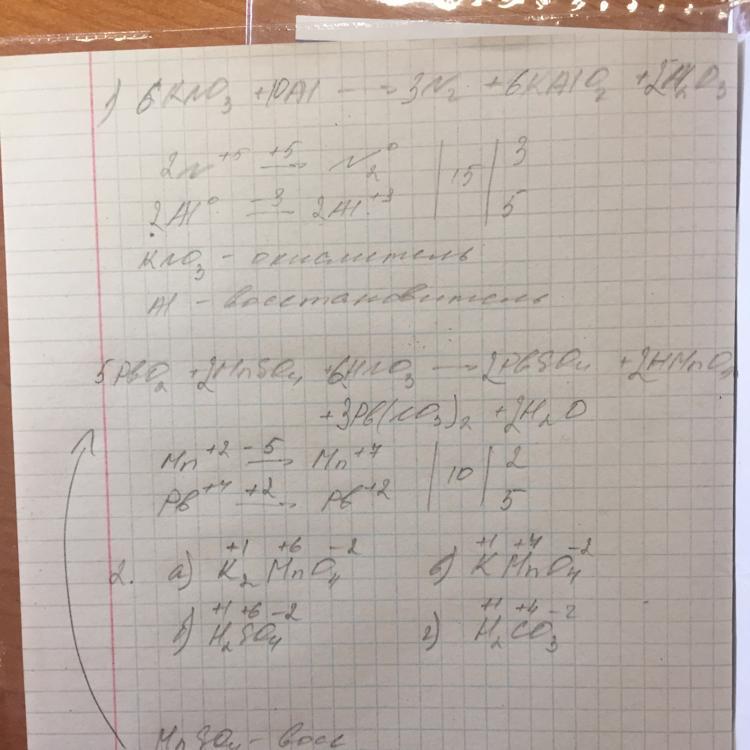 1) 6KNO₃ + 10Al → 3N₂ + 6KAlO₂ + 2Al₂O₃
2N⁺⁵ +5→ N₂⁰ | 15 | 3
2Al⁰ −3→ 2Al⁺³ | 5
KNO₃ – окислитель
Al – восстановитель
5PbO₂ + 2MnSO₄ + 6HNO₃ → 2PbSO₄ + 2HMnO₄
+ 3Pb(NO₃)₂ + 2H₂O
Mn⁺² −5→ Mn⁺⁷ | 10 | 2
Pb⁺⁴ +2→ Pb⁺² | 5
2. а) K₂⁺¹Mn⁺⁶O₄⁻² в) K⁺¹Mn⁺⁷O₄⁻²
б) H₂⁺¹S⁺⁶O₄⁻² г) H₂⁺¹C⁺⁴O₃⁻²
MnSO₄ – восс